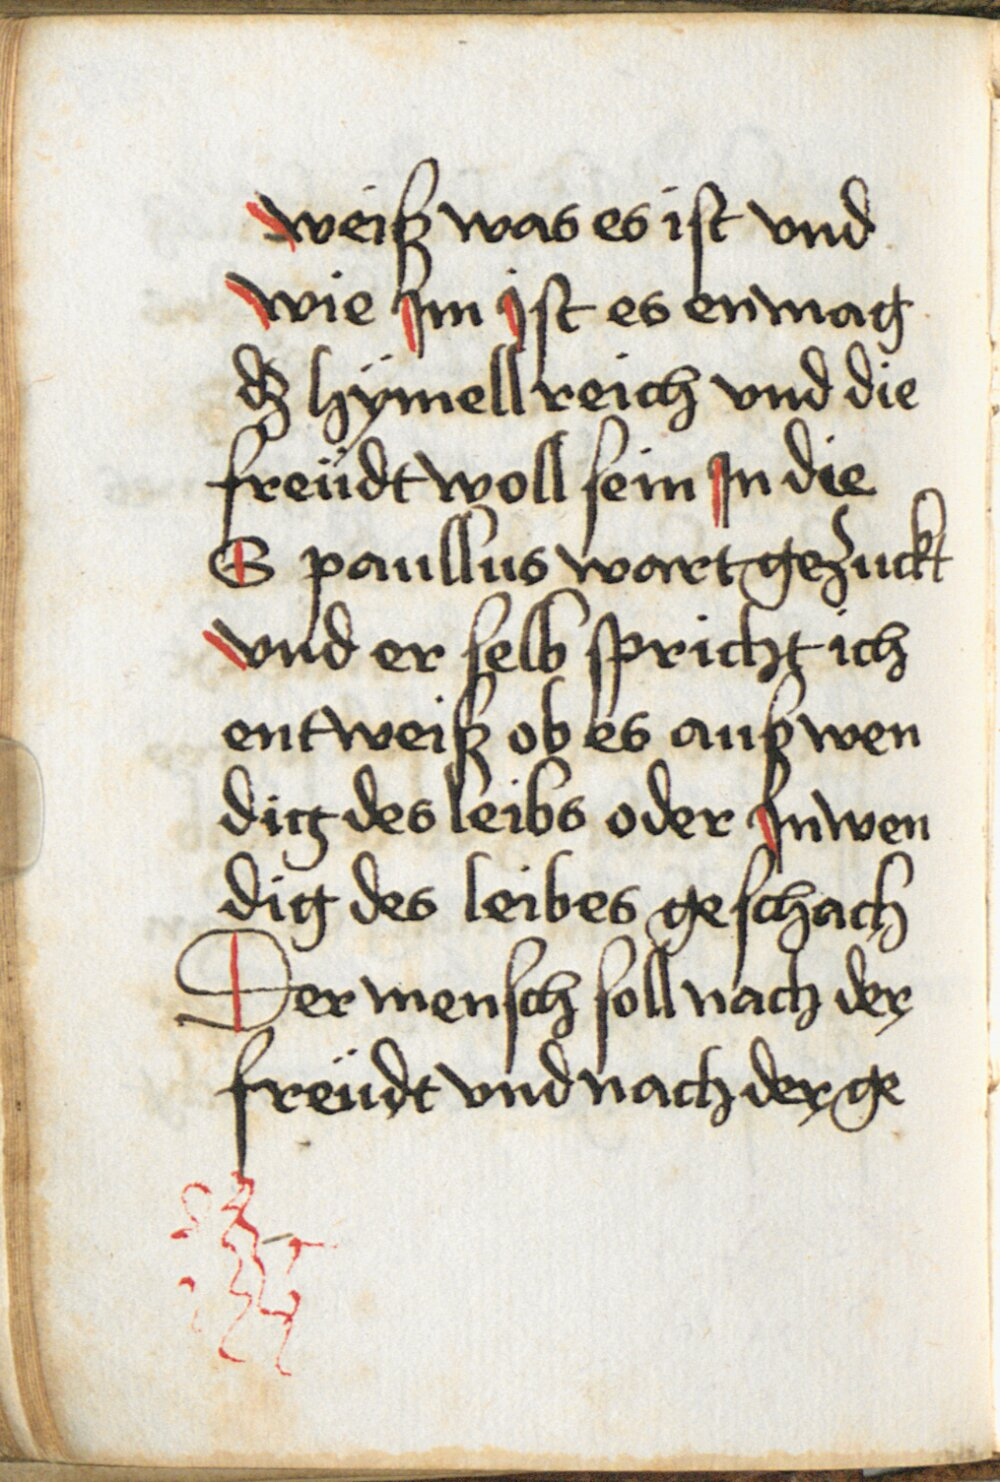 weiß was es ist vnd
wie Jm Jst es enmag
dz hÿmellreich vnd die
freüdt woll sein Jn die
S paullus wart gezuckt
vnd er selb spricht ich
entweiß ob es außwen
dig des leibs oder Jnwen
dig des leibes geschach
Der mensch soll nach der
freüdt vnd nach der ge